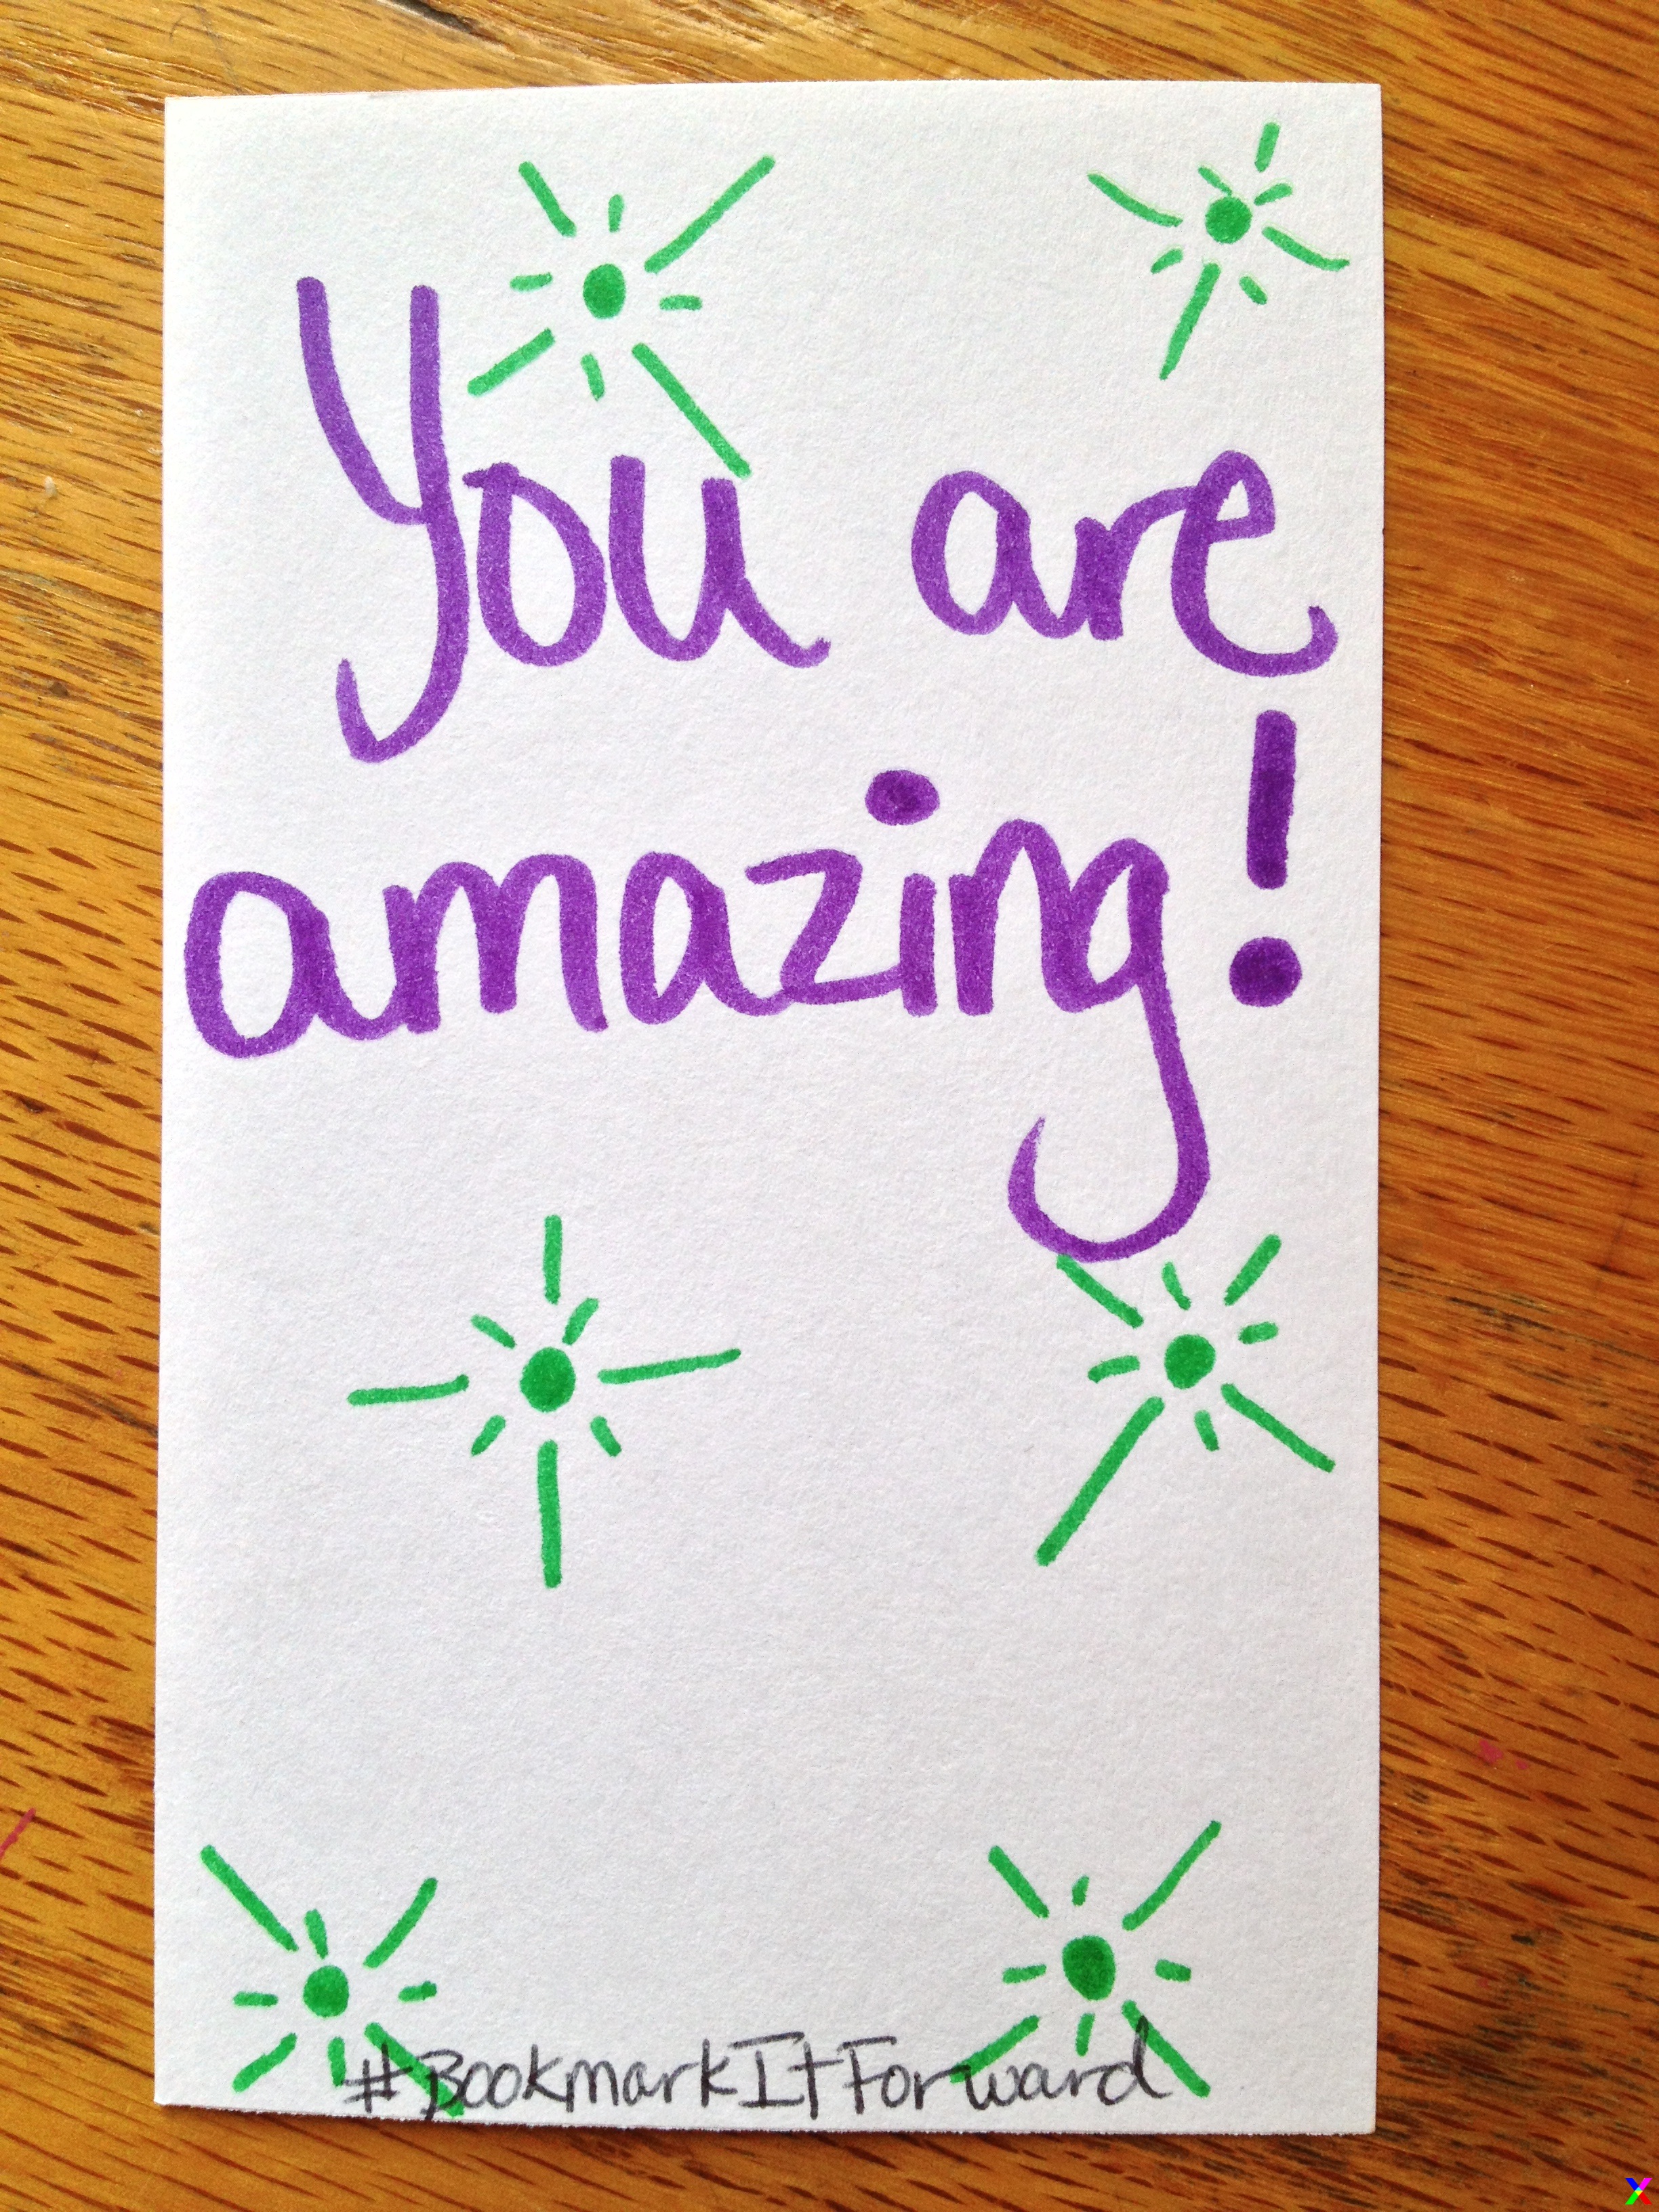 You are
amazing!
#BookmarkItForward